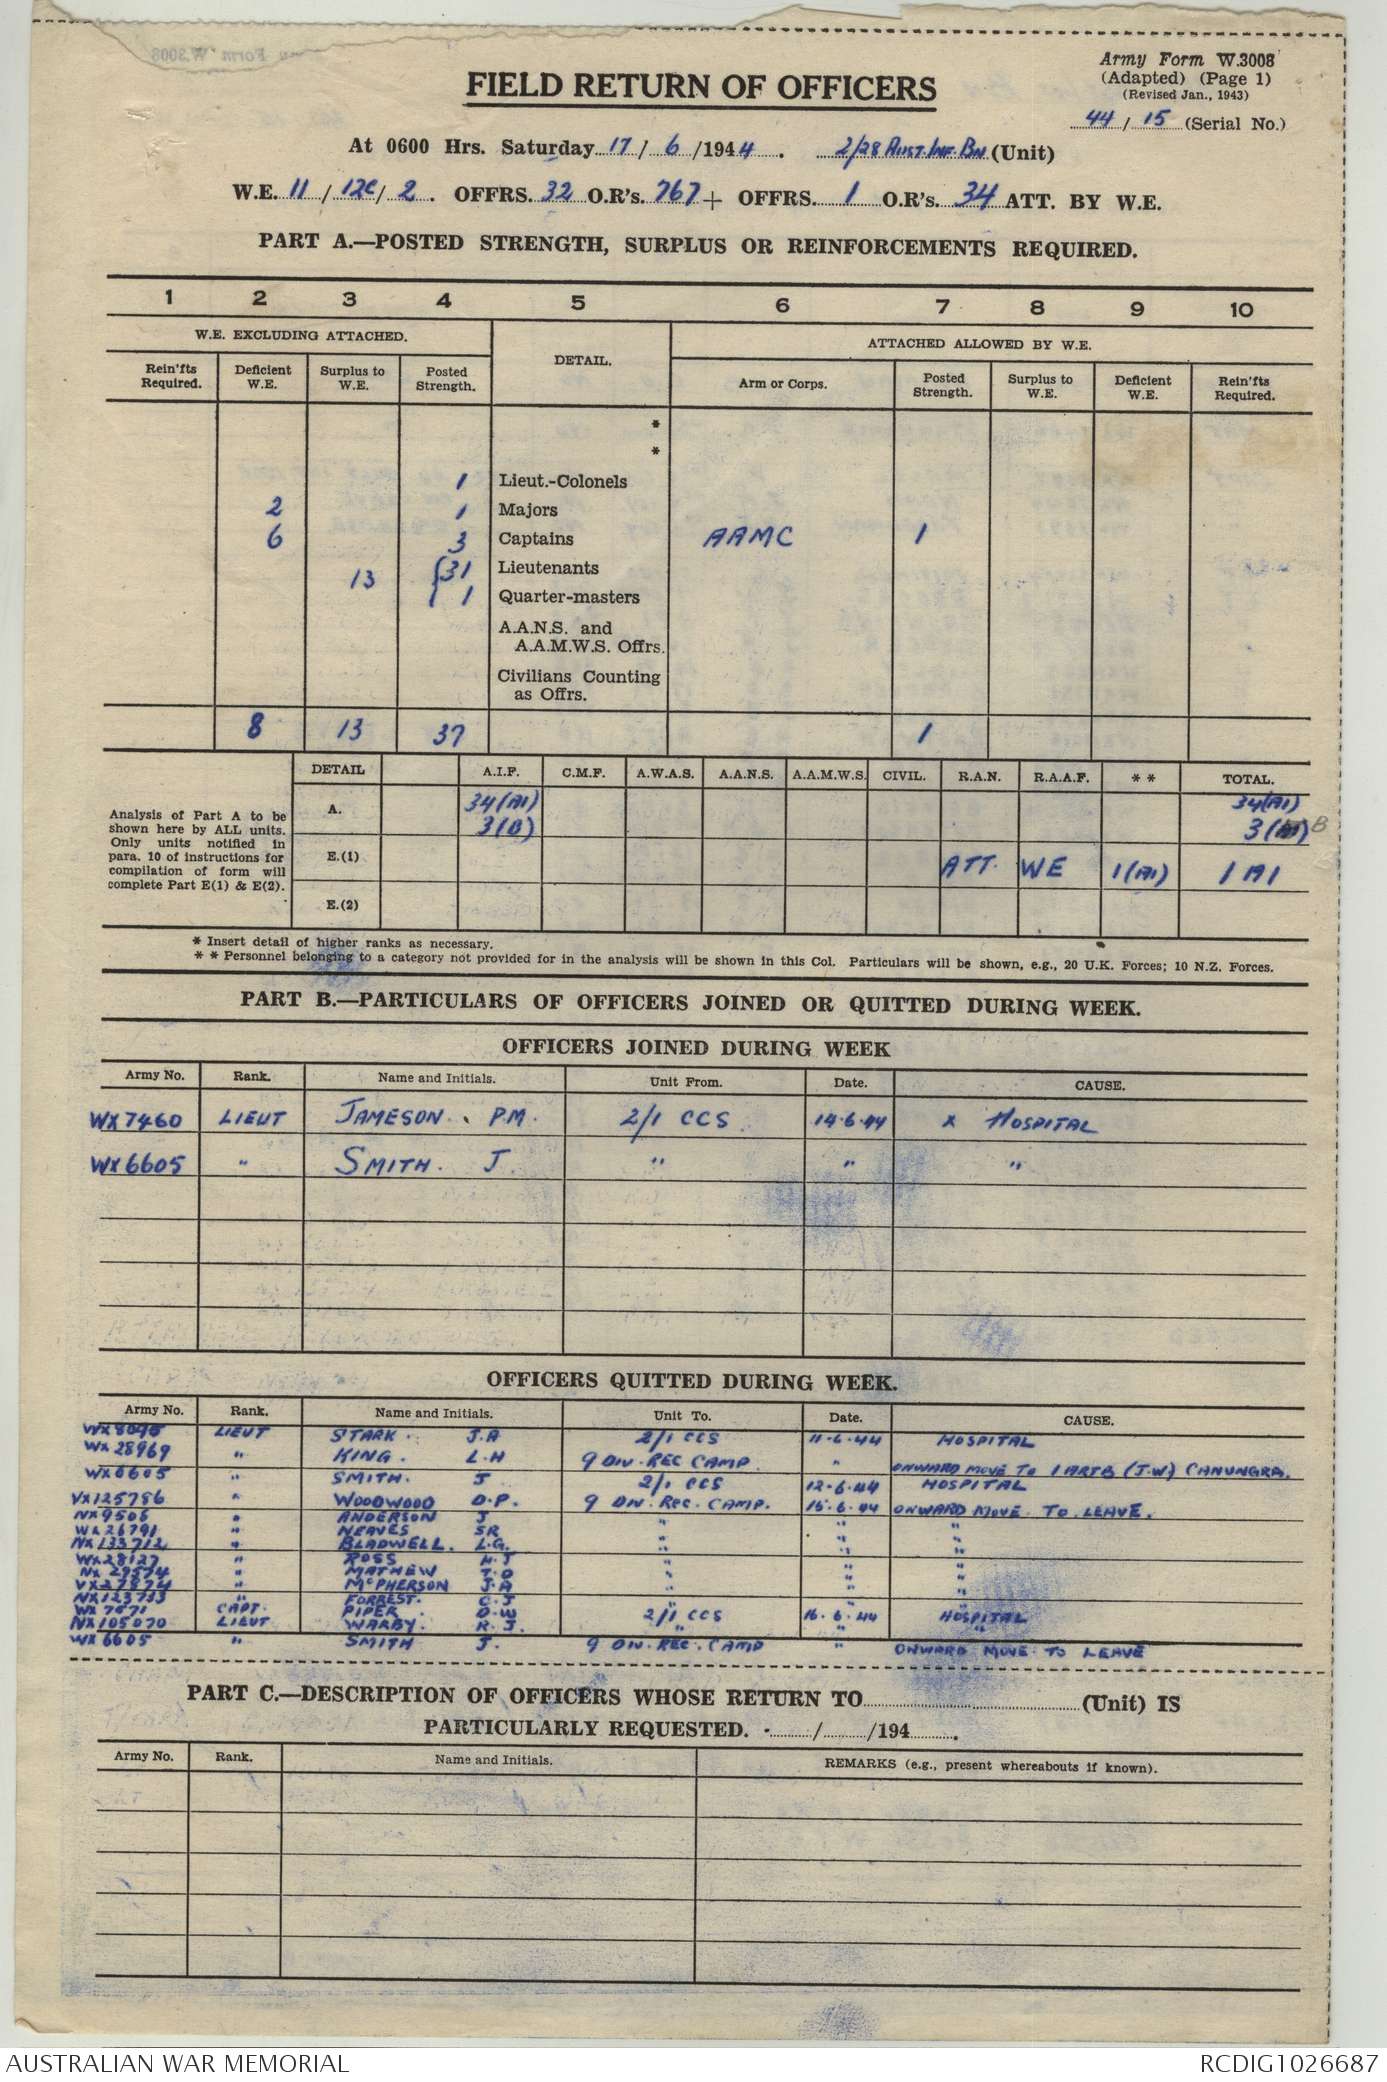 Army Form W.3008
(Adapted) (Page 1)
(Revised Jan., 1943)
44 / 15 (Serial No.)
FIELD RETURN OF OFFICERS
At 0600 Hrs. Saturday 17 / 6 /1944. 2/28 AUST. INF. BN (Unit)
W.E. 11 / 12C / 2. OFFRS. 32 O.R's. 767 + OFFRS. 1 O.R's. 34 ATT. BY W.E.
PART A.—POSTED STRENGTH, SURPLUS OR REINFORCEMENTS REQUIRED.
1 2 3 4 5 6 7 8 9 10
W.E. EXCLUDING ATTACHED. DETAIL. ATTACHED ALLOWED BY W.E.
Rein'fts Required. Deficient W.E. Surplus to W.E. Posted Strength. Arm or Corps. Posted Strength. Surplus to W.E. Deficient W.E. Rein'fts Required.
*
*
1 Lieut.-Colonels
2 1 Majors
6 3 Captains AAMC 1
13 {31 Lieutenants
1 Quarter-masters
A.A.N.S. and
A.A.M.W.S. Offrs.
Civilians Counting
as Offrs.
8 13 37 1
DETAIL A.I.F. C.M.F. A.W.A.S. A.A.N.S. A.A.M.W.S. CIVIL. R.A.N. R.A.A.F. * * TOTAL.
Analysis of Part A to be
shown here by ALL units.
Only units notified in
para. 10 of instructions for
compilation of form will
complete Part E(1) & E(2).
A. 34 (A1) 34 (A1)
3 (B) 3 B
E.(1) ATT. WE 1 (A1) 1 A1
E.(2)
* Insert detail of higher ranks as necessary.
* * Personnel belonging to a category not provided for in the analysis will be shown in this Col. Particulars will be shown, e.g., 20 U.K. Forces; 10 N.Z. Forces.
PART B.—PARTICULARS OF OFFICERS JOINED OR QUITTED DURING WEEK.
OFFICERS JOINED DURING WEEK
Army No. Rank. Name and Initials. Unit From. Date. CAUSE.
WX7460 LIEUT JAMESON. P.M. 2/1 CCS 14.6.44 X HOSPITAL
WX6605 " SMITH. J. " " "
OFFICERS QUITTED DURING WEEK.
Army No. Rank. Name and Initials. Unit To. Date. CAUSE.
WX8095 LIEUT STARK. J.A 2/1 CCS 11.6.44 HOSPITAL
WX28969 " KING. L.H 9 DIV. REC CAMP. " ONWARD MOVE TO 1 ARTB (J.W) CANUNGRA.
WX6605 " SMITH. J 2/1 CCS 12.6.44 HOSPITAL
VX125786 " WOODWOOD D.P. 9 DIV. REC. CAMP. 15.6.44 ONWARD MOVE TO LEAVE.
NX9505 " ANDERSON J " " "
WX26791 " NEAVES SR " " "
NX133712 " BLADWELL. L.G. " " "
WX28127 " ROSS H.J " " "
NX29574 " MATHEW T.D " " "
VX27874 " McPHERSON J.A " " "
NX123733 " FORREST. C.J " " "
WX7571 CAPT. PIPER D.W 2/1 CCS 16.6.44 HOSPITAL
NX105070 LIEUT WARBY. R.J. " " "
WX6605 " SMITH J. 9 DIV. REC. CAMP " ONWARD MOVE TO LEAVE
PART C.—DESCRIPTION OF OFFICERS WHOSE RETURN TO (Unit) IS
PARTICULARLY REQUESTED. / /194
Army No. Rank. Name and Initials. REMARKS (e.g., present whereabouts if known).
AUSTRALIAN WAR MEMORIAL RCDIG1026687